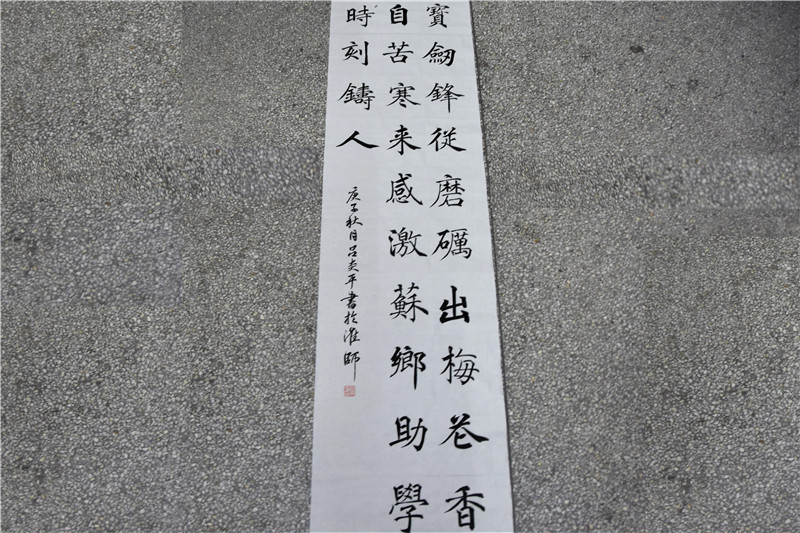 寶劒鋒從磨礪出梅花香
自苦寒来感激蘇鄉助學
時刻鑄人
庚子秋月吕炎平書於淮師